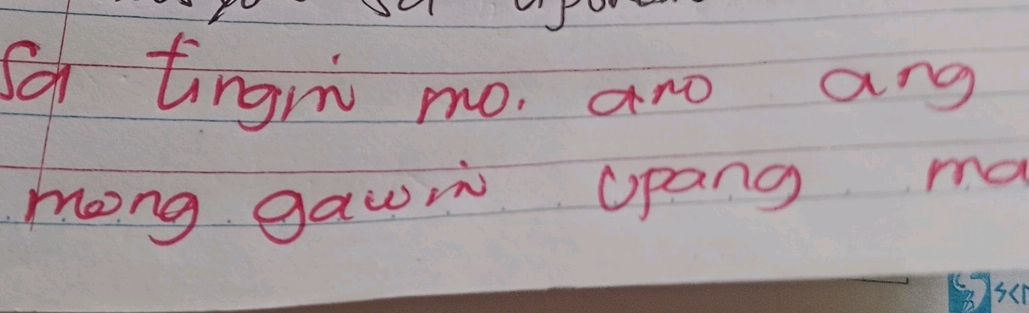 Sa tingin mo. ano ang
mong gawin upang ma